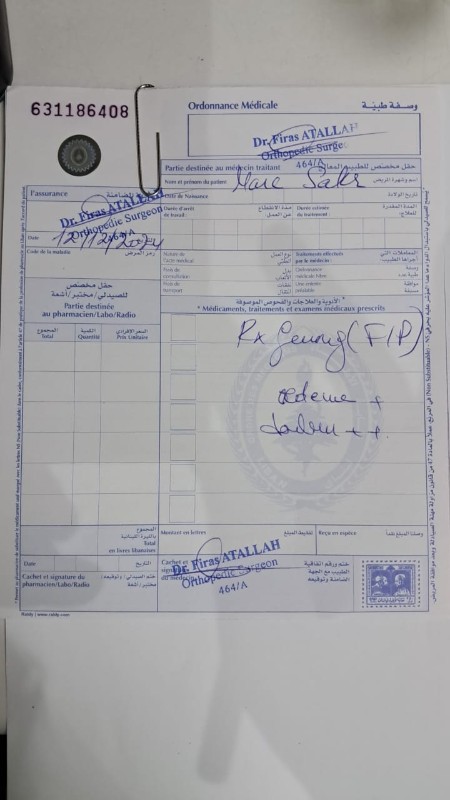 631186408
Ordonnance Médicale
وصفة طبيّة
Dr. Firas ATALLAH
Orthopedic Surgeon
464/A
Partie destinée au médecin traitant
حقل مخصّص للطبيب المعالج
Nom et prénom du patient
Marc Sakr
اسم وشهرة المريض
l'assurance
الضامنة
Date de Naissance
تاريخ الولادة
Dr. Firas ATALLAH
Orthopedic Surgeon
464/A
Durée d'arrêt de travail:
مدة الانقطاع عن العمل
Durée estimée de traitement:
المدة المقدرة للعلاج:
Date
12/12/2024
Code de la maladie
رمز المرض
Nature de l'acte médical
نوع العمل الطبّي
Traitements effectués par le médecin:
المعالجات التي أجراها الطبيب:
Ordonnance
وصفة
حقل مخصّص
للصيدلي/مختبر/أشعة
Partie destinée
au pharmacien/Labo/Radio
* الأدوية والعلاجات والفحوص الموصوفة
* Médicaments, traitements et examens médicaux prescrits
المجموع
Total
الكمية
Quantité
السعر الإفرادي
Prix Unitaire
Rx Genoug (F/P)
oedeme +
douleur + +
المجموع
بالليرة اللبنانية
Total
en livres libanaises
Montant en lettres
المبلغ
Reçu en espèce
وصلنا المبلغ نقداً
Date
التاريخ
Cachet et signature
du pharmacien/Labo/Radio
ختم وتوقيع الصيدلي/
مختبر/أشعة
Cachet et
Dr. Firas ATALLAH
Orthopedic Surgeon
464/A
ختم ورقم اتفاقية
الطبيب مع الجهة
الضامنة وتوقيعه
Raidy | www.raidy.com